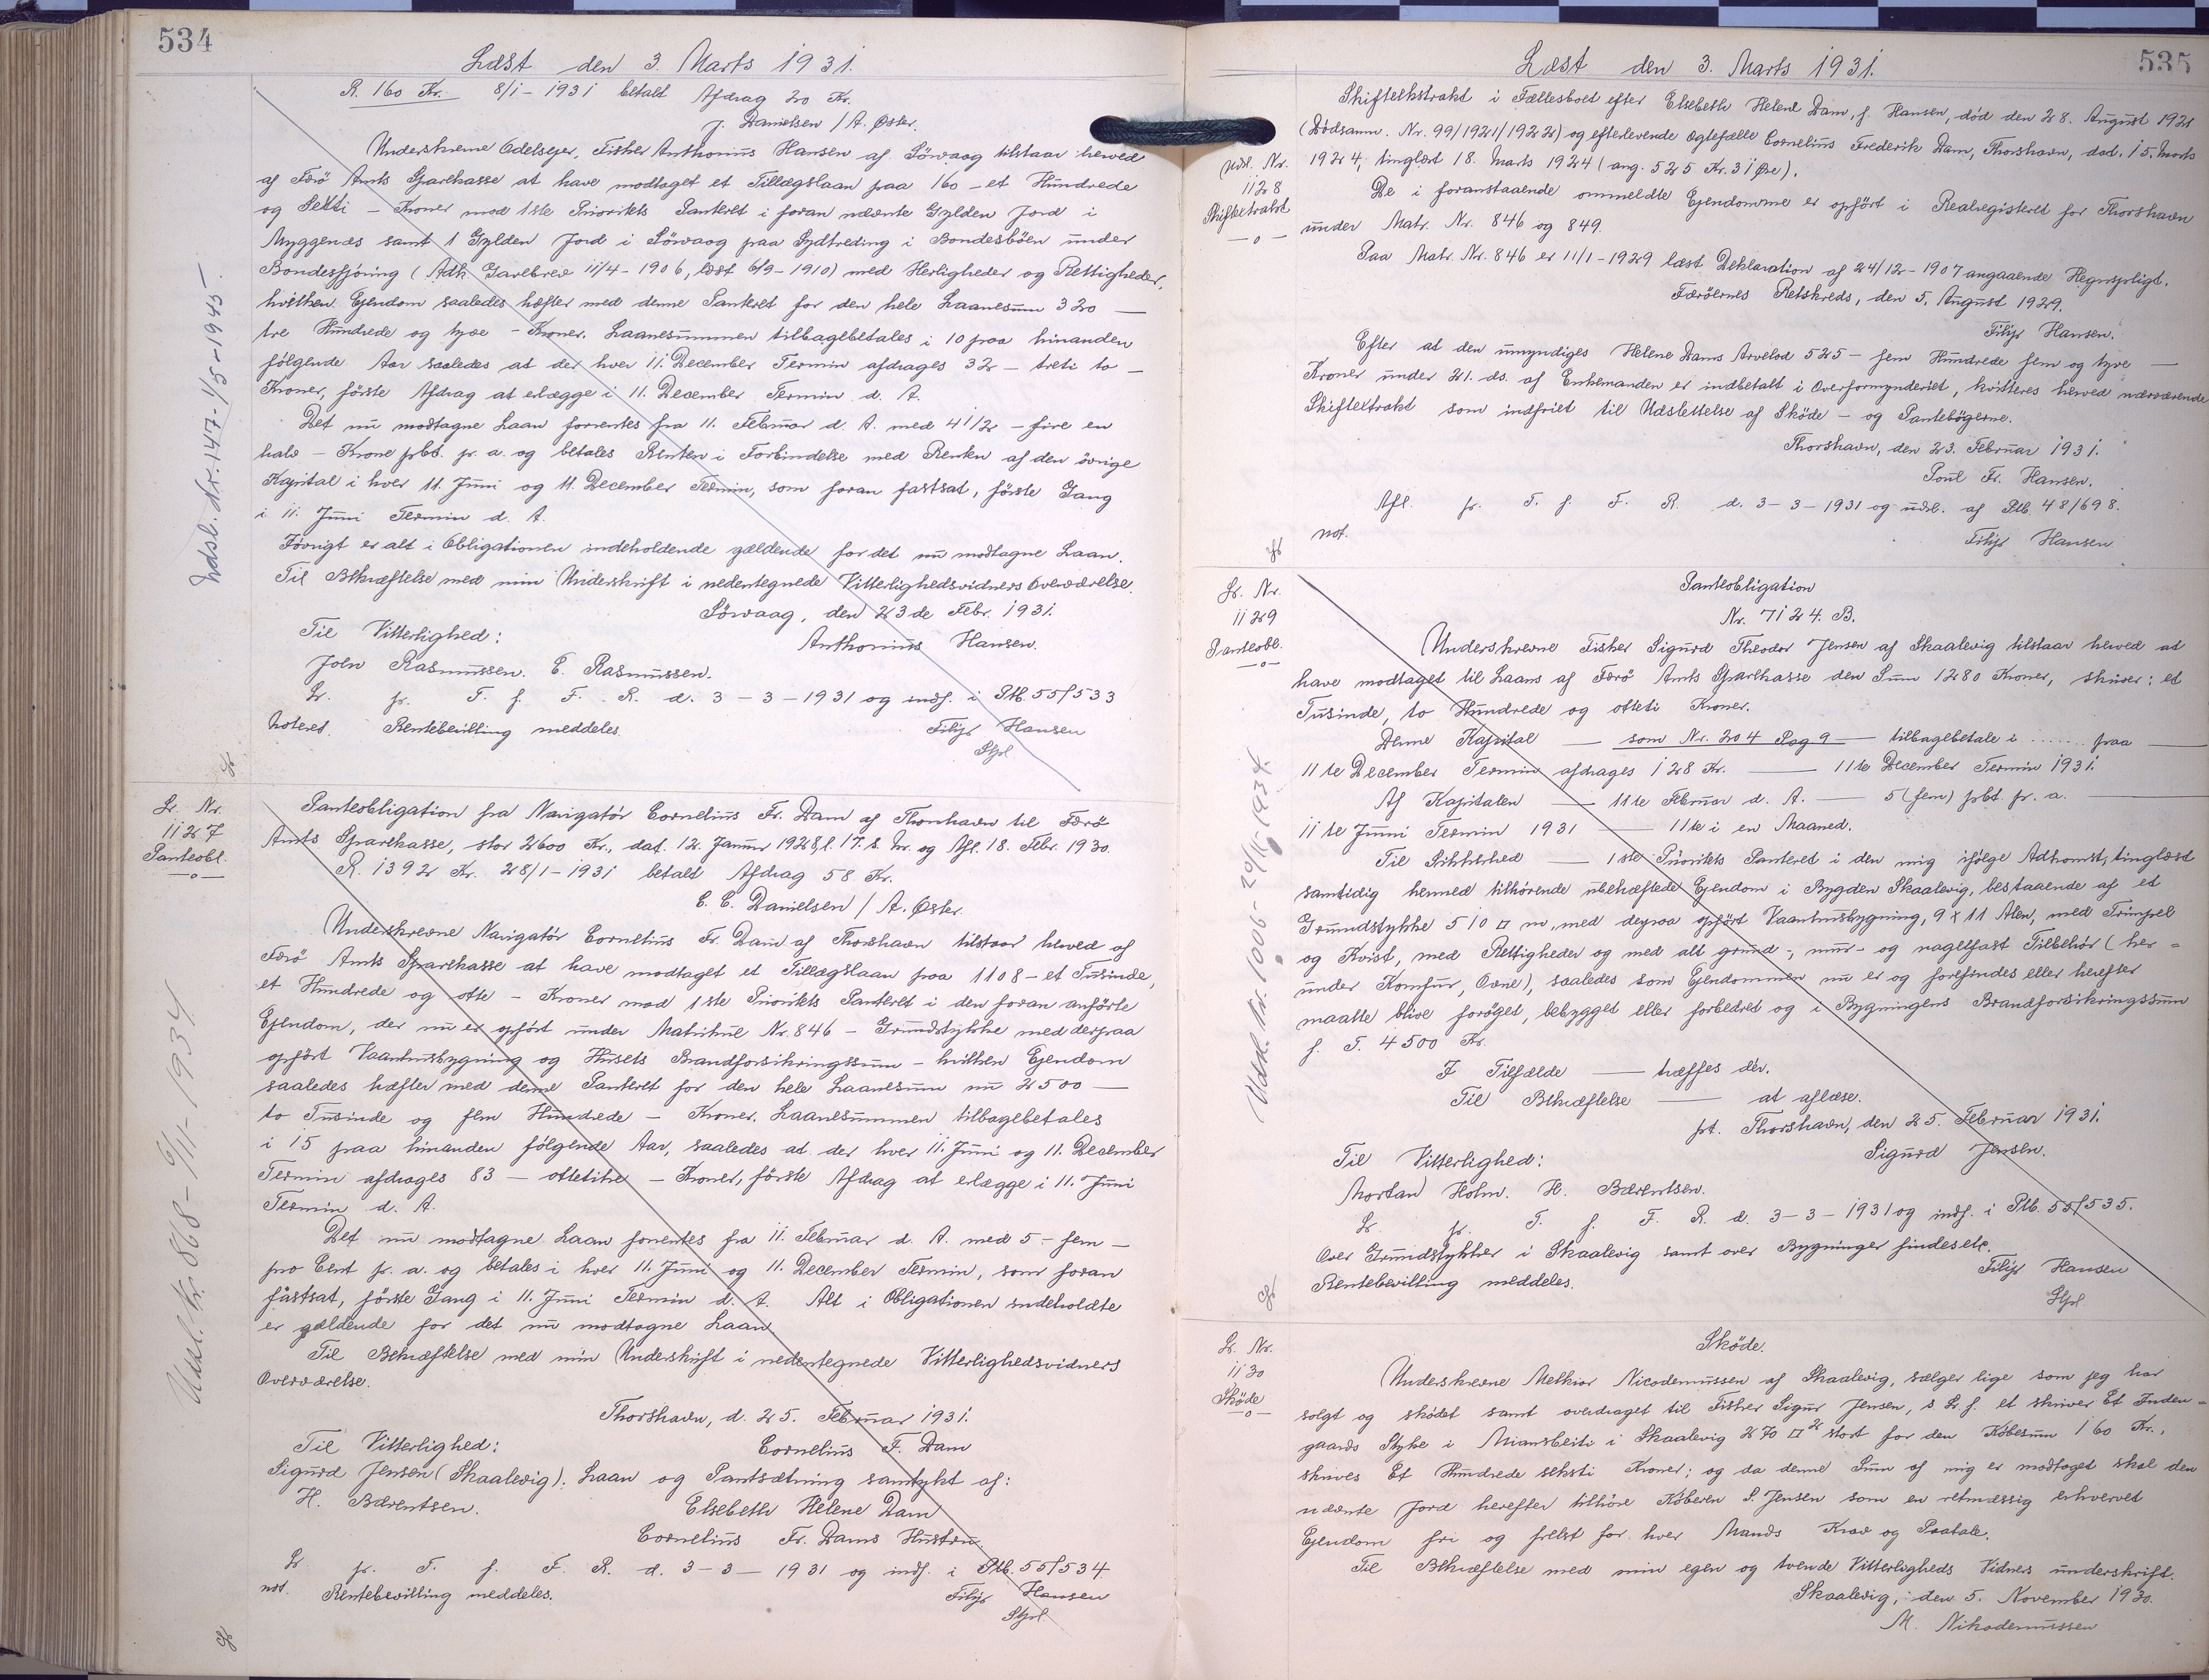 534
Læst den 3. Marts 1931.
R. 160 Kr. 8/1-1931 betalt Afdrag 20 Kr.
J. Danielsen / A. Øster.
Underskrevne Odelsejer, Fisker Anthonius Hansen af Sörvaag tilstaar herved
af Færö Amts Sparekasse at have modtaget et Tillægslaan paa 160 - et Hundrede
og Seksti - Kroner mod 1ste Prioritets Panteret i foran nævnte Gylden Jord i
Myggenæs samt 1 Gylden Jord i Sörvaag paa Sydtreding i Bondesböen under
Bondesfjöring (Adk. Gavebrev 11/4-1906, læst 6/9-1910) med Herligheder og Rettigheder,
hvilken Ejendom saaledes hæfter med denne Panteret for den hele Laanesum 320 —
tre Hundrede og tyve - Kroner. Laanesummen tilbagebetales i 10 paa hinanden
følgende Aar saaledes at der hver 11. December Termin afdrages 32 - treti to -
Kroner, förste Afdrag at erlægge i 11. December Termin d. A.
Det nu modtagne Laan forrentes fra 11. Februar d. A. med 4 1/2 - fire en
halv - Krone pCt. pr. a. og betales Renten i Forbindelse med Renten af den övrige
Kapital i hver 11. Juni og 11. December Termin, som foran fastsat, förste Gang
i 11. Juni Termin d. A.
Iövrigt er alt i Obligationen indeholdende gældende for det nu modtagne Laan.
Til Bekræftelse med min Underskrift i nedentegnede Vitterlighedsvidners Overværelse.
Sörvaag, den 23de Febr. 1931.
Til Vitterlighed: Anthonius Hansen.
Joen Rasmussen. E. Rasmussen.
Lr. fr. T. f. F. R. d. 3-3-1931 og indf. i Ptb. 55/533
Noteret. Rentebevilling meddeles. Filip Hansen
Gpl.
Udsl. Nr. 147-1/5-1945
Lr. Nr.
1127
Panteobl.
—o—
Panteobligation fra Navigatör Cornelius Fr. Dam af Thorshavn til Færö
Amts Sparekasse, stor 2600 Kr., dat. 12. Januar 1928, l. 17. s. M. og Afl. 18. Febr. 1930.
R. 1392 Kr. 28/1-1931 betalt Afdrag 58 Kr.
C. C. Danielsen / A. Øster.
Underskrevne Navigatör Cornelius Fr. Dam af Thorshavn tilstaar herved af
Færö Amts Sparekasse at have modtaget et Tillægslaan paa 1108 - et Tusinde,
et Hundrede og otte - Kroner mod 1ste Prioritets Panteret i den foran anförte
Ejendom, der nu er opfört under Matrikul Nr. 846 - Grundstykke med derpaa
opfört Vaaningsbygning og Husets Brandforsikringssum - hvilken Ejendom
saaledes hæfter med denne Panteret for den hele Laanesum nu 2500 —
to Tusinde og fem Hundrede - Kroner. Laanesummen tilbagebetales
i 15 paa hinanden fölgende Aar, saaledes at der hver 11. Juni og 11. December
Termin afdrages 83 - ottetitre - Kroner, förste Afdrag at erlægge i 11. Juni
Termin d. A.
Det nu modtagne Laan forrentes fra 11. Februar d. A. med 5 - fem -
pro Cent pr. a. og betales i hver 11. Juni og 11. December Termin, som foran
fastsat, förste Gang i 11. Juni Termin d. A. Alt i Obligationen indeholdte
er gældende for det nu modtagne Laan.
Til Bekræftelse med min Underskrift i nedentegnede Vitterlighedsvidners
Overværelse.
Thorshavn, d. 25. Februar 1931.
Til Vitterlighed: Cornelius F. Dam
Sigurd Jensen (Skaalevig). Laan og Pantsætning samtykt af:
H. Bærentsen. Elsebeth Helene Dam
Cornelius Fr. Dams Hustru.
Lr. fr. T. f. F. R. d. 3-3-1931 og indf. i Ptb. 55/534
not. Rentebevilling meddeles. Filip Hansen
Gpl.
Udsl. Nr. 868-6/11-1934
535
Læst den 3. Marts 1931.
Udsl. Nr.
1128
Skifteekstrakt
—o—
Skifteekstrakt i Fællesboet efter Elsebeth Helene Dam, f. Hansen, död den 28. August 1921
(Dödsanm. Nr. 99/1921/1922) og efterlevende Ægtefælle Cornelius Frederik Dam, Thorshavn, dat. 15. Marts
1924, tinglæst 18. Marts 1924 (ang. 525 Kr. 31 Øre).
De i foranstaaende ommeldte Ejendomme er opfört i Realregisteret for Thorshavn
under Matr. Nr. 846 og 849.
Paa Matr. Nr. 846 er 11/1-1929 læst Deklaration af 24/12-1907 angaaende Hegnspligt.
Færöernes Retskreds, den 5. August 1929.
Filip Hansen.
Efter at den umyndiges Helene Dams Arvelod 525 - fem Hundrede fem og tyve —
Kroner under 21. ds. af Enkemanden er indbetalt i Overformynderiet, kvitteres herved nærværende
Skifteextrakt som indfriet til Udslettelse af Sköde - og Pantebögerne.
Thorshavn, den 23. Februar 1931.
Poul Fr. Hansen.
Afl. fr. T. f. F. R. d. 3-3-1931 og udsl. af Ptb. 48/698.
not. Filip Hansen
Lr. Nr.
1129
Panteobl.
—o—
Panteobligation
Nr. 7124. B.
Underskrevne Fisker Sigurd Theodor Jensen af Skaalevig tilstaar herved at
have modtaget til Laans af Færö Amts Sparekasse den Sum 1280 Kroner, skriver: et
Tusinde, to Hundrede og otteti Kroner.
Denne Kapital — som Nr. 204 Pag 9 — tilbagebetale i ...... paa —
11te December Termin afdrages 128 Kr. — 11te December Termin 1931.
Af Kapitalen — 11te Februar d. A. — 5 (fem) pCt. pr. a. —
11te Juni Termin 1931 — 11te i en Maaned.
Til Sikkerhed — 1ste Prioritets Panteret i den mig ifölge Adkomst, tinglæst
samtidig hermed tilhörende ubehæftede Ejendom i Bygden Skaalevig, bestaaende af et
Grundstykke 510 □ m, med derpaa opfört Vaaningsbygning, 9 x 11 Alen, med Trimpel
og Kvist, med Rettigheder og med alt grund-, mur- og nagelfast Tilbehör (her-
under Komfur, Ovne), saaledes som Ejendommen nu er og forefindes eller herefter
maatte blive foröget, bebygget eller forbedret og i Bygningens Brandforsikringssum
f. T. 4500 Kr.
I Tilfælde — træffes dér.
Til Bekræftelse — at aflæse.
pt. Thorshavn, den 25. Februar 1931.
Til Vitterlighed: Sigurd Jensen.
Mortan Holm. H. Bærentsen.
Lr. fr. T. f. F. R. d. 3-3-1931 og indf. i Ptb. 55/535.
Over Grundstykker i Skaalevig samt over Bygninger findes etc.
Rentebevilling meddeles. Filip Hansen
Gpl.
Udsl. Nr. 1006-29/11-1934.
Lr. Nr.
1130
Sköde
—o—
Sköde.
Underskrevne Melkior Nicodemussen af Skaalevig, sælger lige som jeg har
solgt og sködet samt overdraget til Fisker Sigur Jensen, s St. f. et skriver Et Inden-
gaards Styke i Miansbeiti i Skaalevig 270 □² stort for den Köbesum 160 Kr.,
skrives Et Hundrede seksti Kroner; og da denne Sum af mig er modtaget skal den
nævnte Jord herefter tilhöre Köberen S. Jensen som en retmæssig erhvervet
Ejendom fri og frelst for hver Mands Krav og Paatale.
Til Bekræftelse med min egen og tvende Vitterligheds Vidners underskrift.
Skaalevig, den 5. November 1930.
M. Nikodemussen